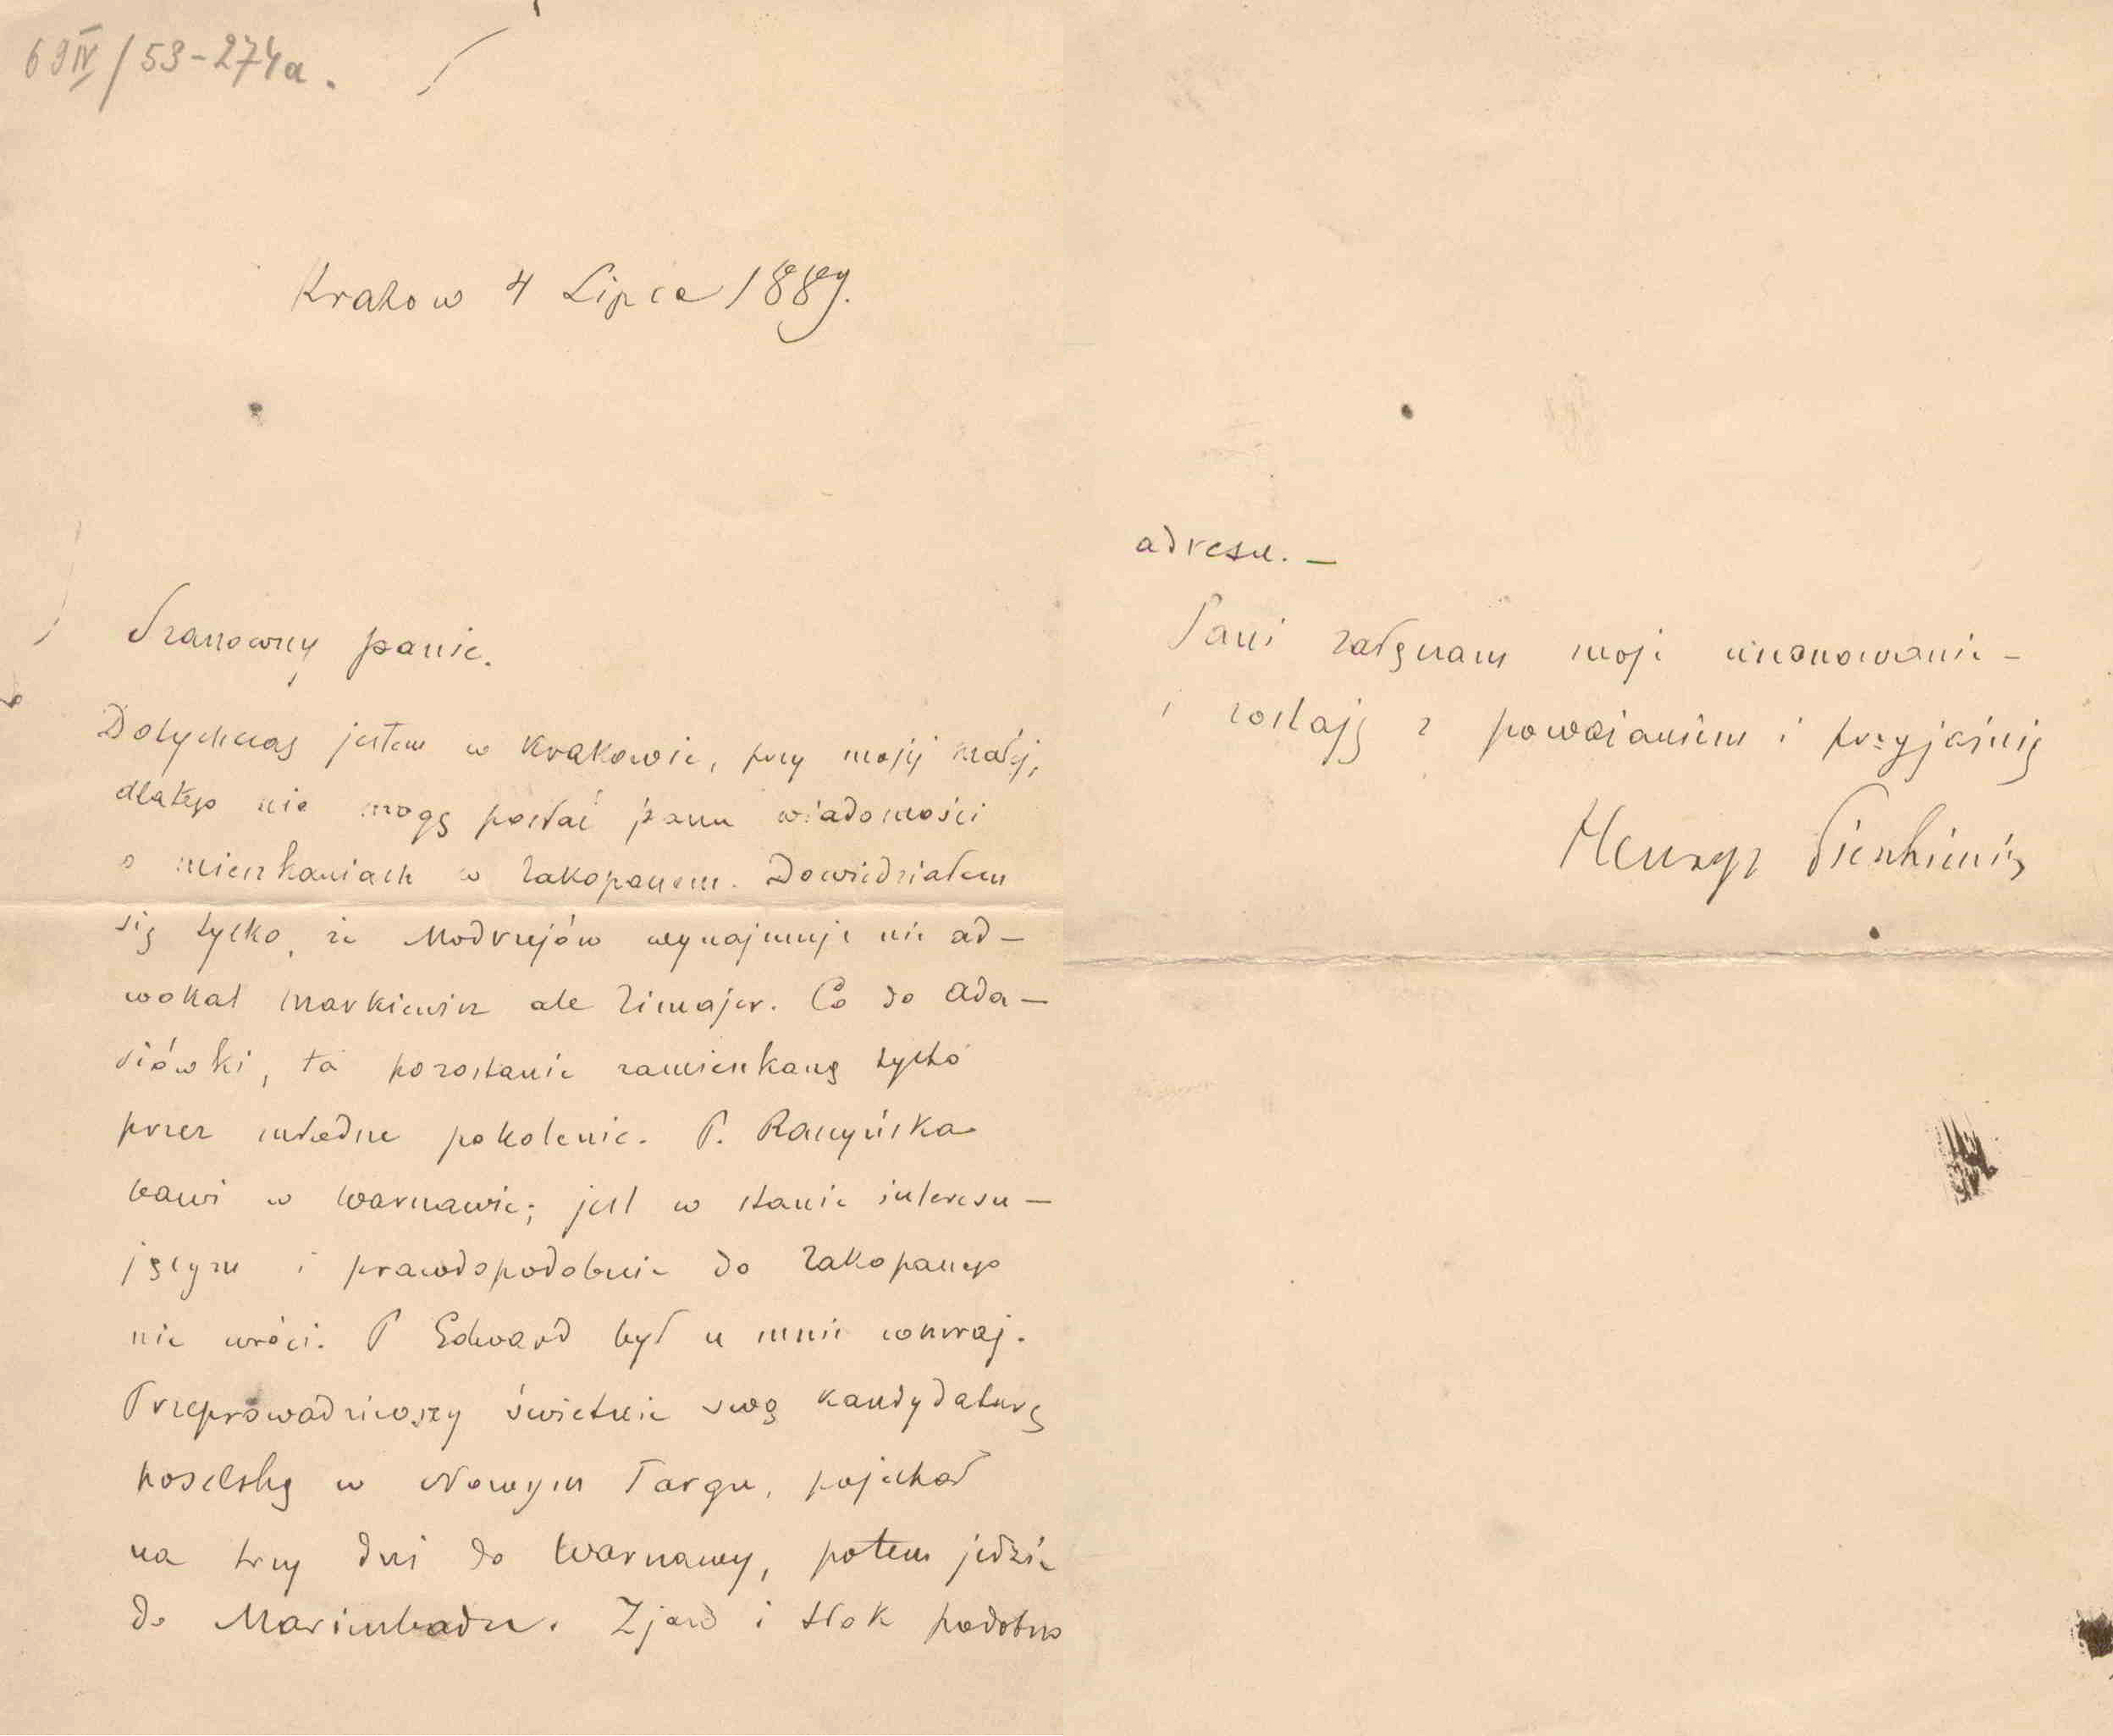 69 IV/53-274a.
Krakow 4 Lipca 1889.
Szanowny panie.
Dotychczas jestem w Krakowie, przy mojej małej,
dlatego nie mogę posłać panu wiadomości
o mieszkaniach w Zakopanem. Dowiedziałem
się tylko, że Modrzejów wynajmuje nie ad-
wokat Markiewicz ale Zimajer. Co do Ada-
siówki, ta pozostanie zamieszkaną tylko
przez młodsze pokolenie. P. Raczyńska
bawi w Warszawie; jest w stanie interesu-
jącym i prawdopodobnie do Zakopanego
nie wróci. P Edward był u mnie wczoraj.
Przeprowadziwszy świetnie swą kandydaturę
poselską w Nowym Targu, pojechał
na trzy dni do Warszawy, potem jedzie
do Marienbadu. Zjazd i tłok podobno
adresu. –
Pani załączam moje uszanowanie –
i zostaję z poważaniem i przyjaźnią
Henryk Sienkiewicz